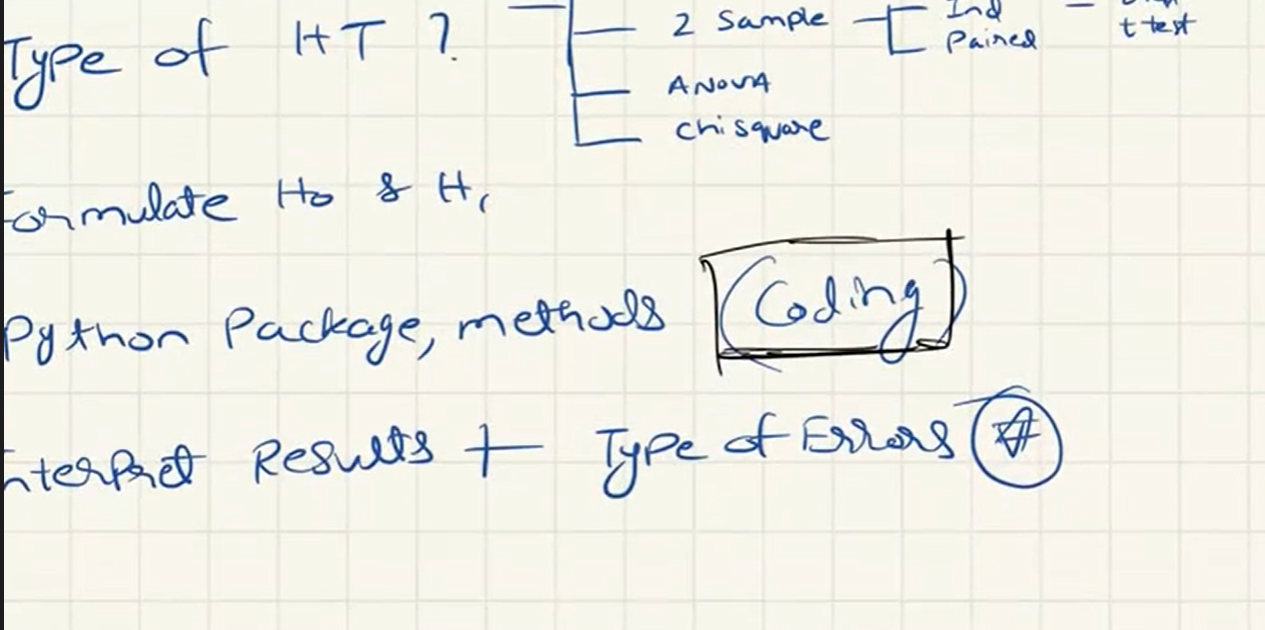 Type of HT ?
2 Sample
Ind
Paired
t test
ANOVA
Chi square
Formulate H0 & H1
Python Package, methods (Coding)
Interpret Results + Type of Errors